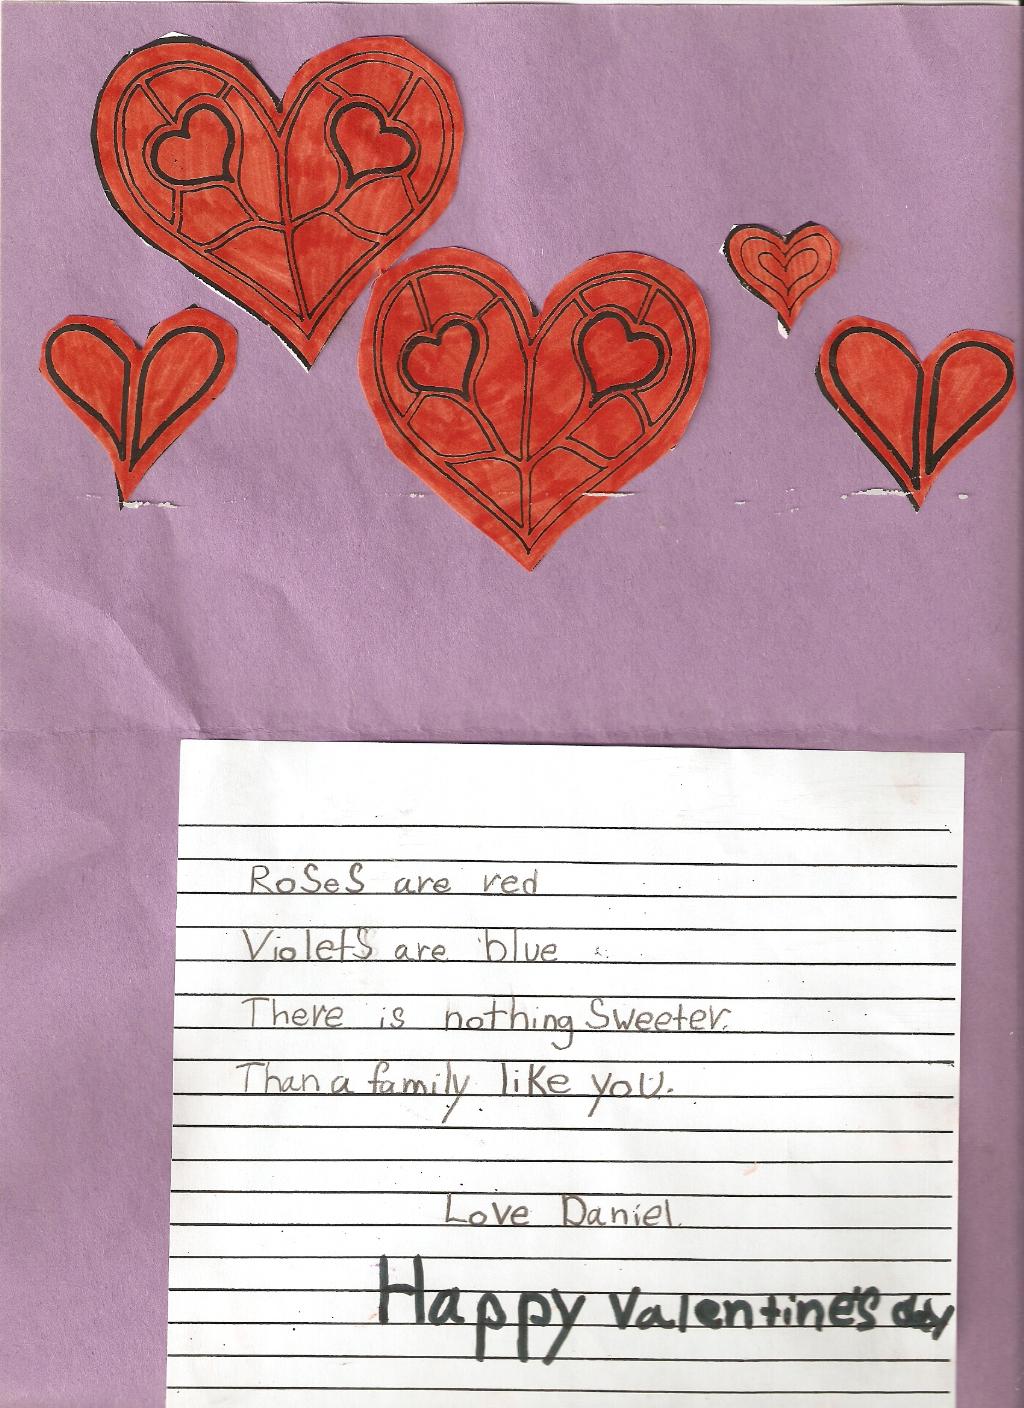 RoSeS are red
VioletS are blue
There is nothing Sweeter.
Than a family like you.
Love Daniel.
Happy Valentine's day